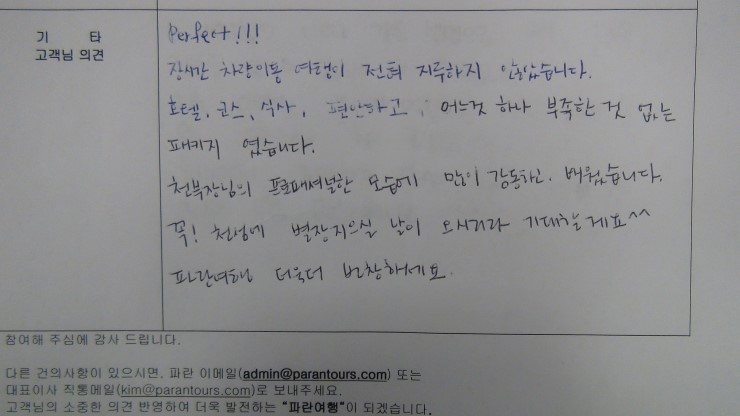 기 타
고객님 의견
Perfect!!!
장시간 차량이동 여행이 전혀 지루하지 않았습니다.
호텔, 코스, 식사, 편안하고, 어느것 하나 부족한 것 없는
패키지 였습니다.
천부장님의 프로패셔널한 모습에 많이 감동하고, 배웠습니다.
꼭! 천섬에 별장지으실 날이 오시리라 기대할게요^^
파란여행 더욱더 번창하세요.
참여해 주심에 감사 드립니다.
다른 건의사항이 있으시면, 파란 이메일(admin@parantours.com) 또는
대표이사 직통메일(kim@parantours.com)로 보내주세요.
고객님의 소중한 의견 반영하여 더욱 발전하는 "파란여행"이 되겠습니다.